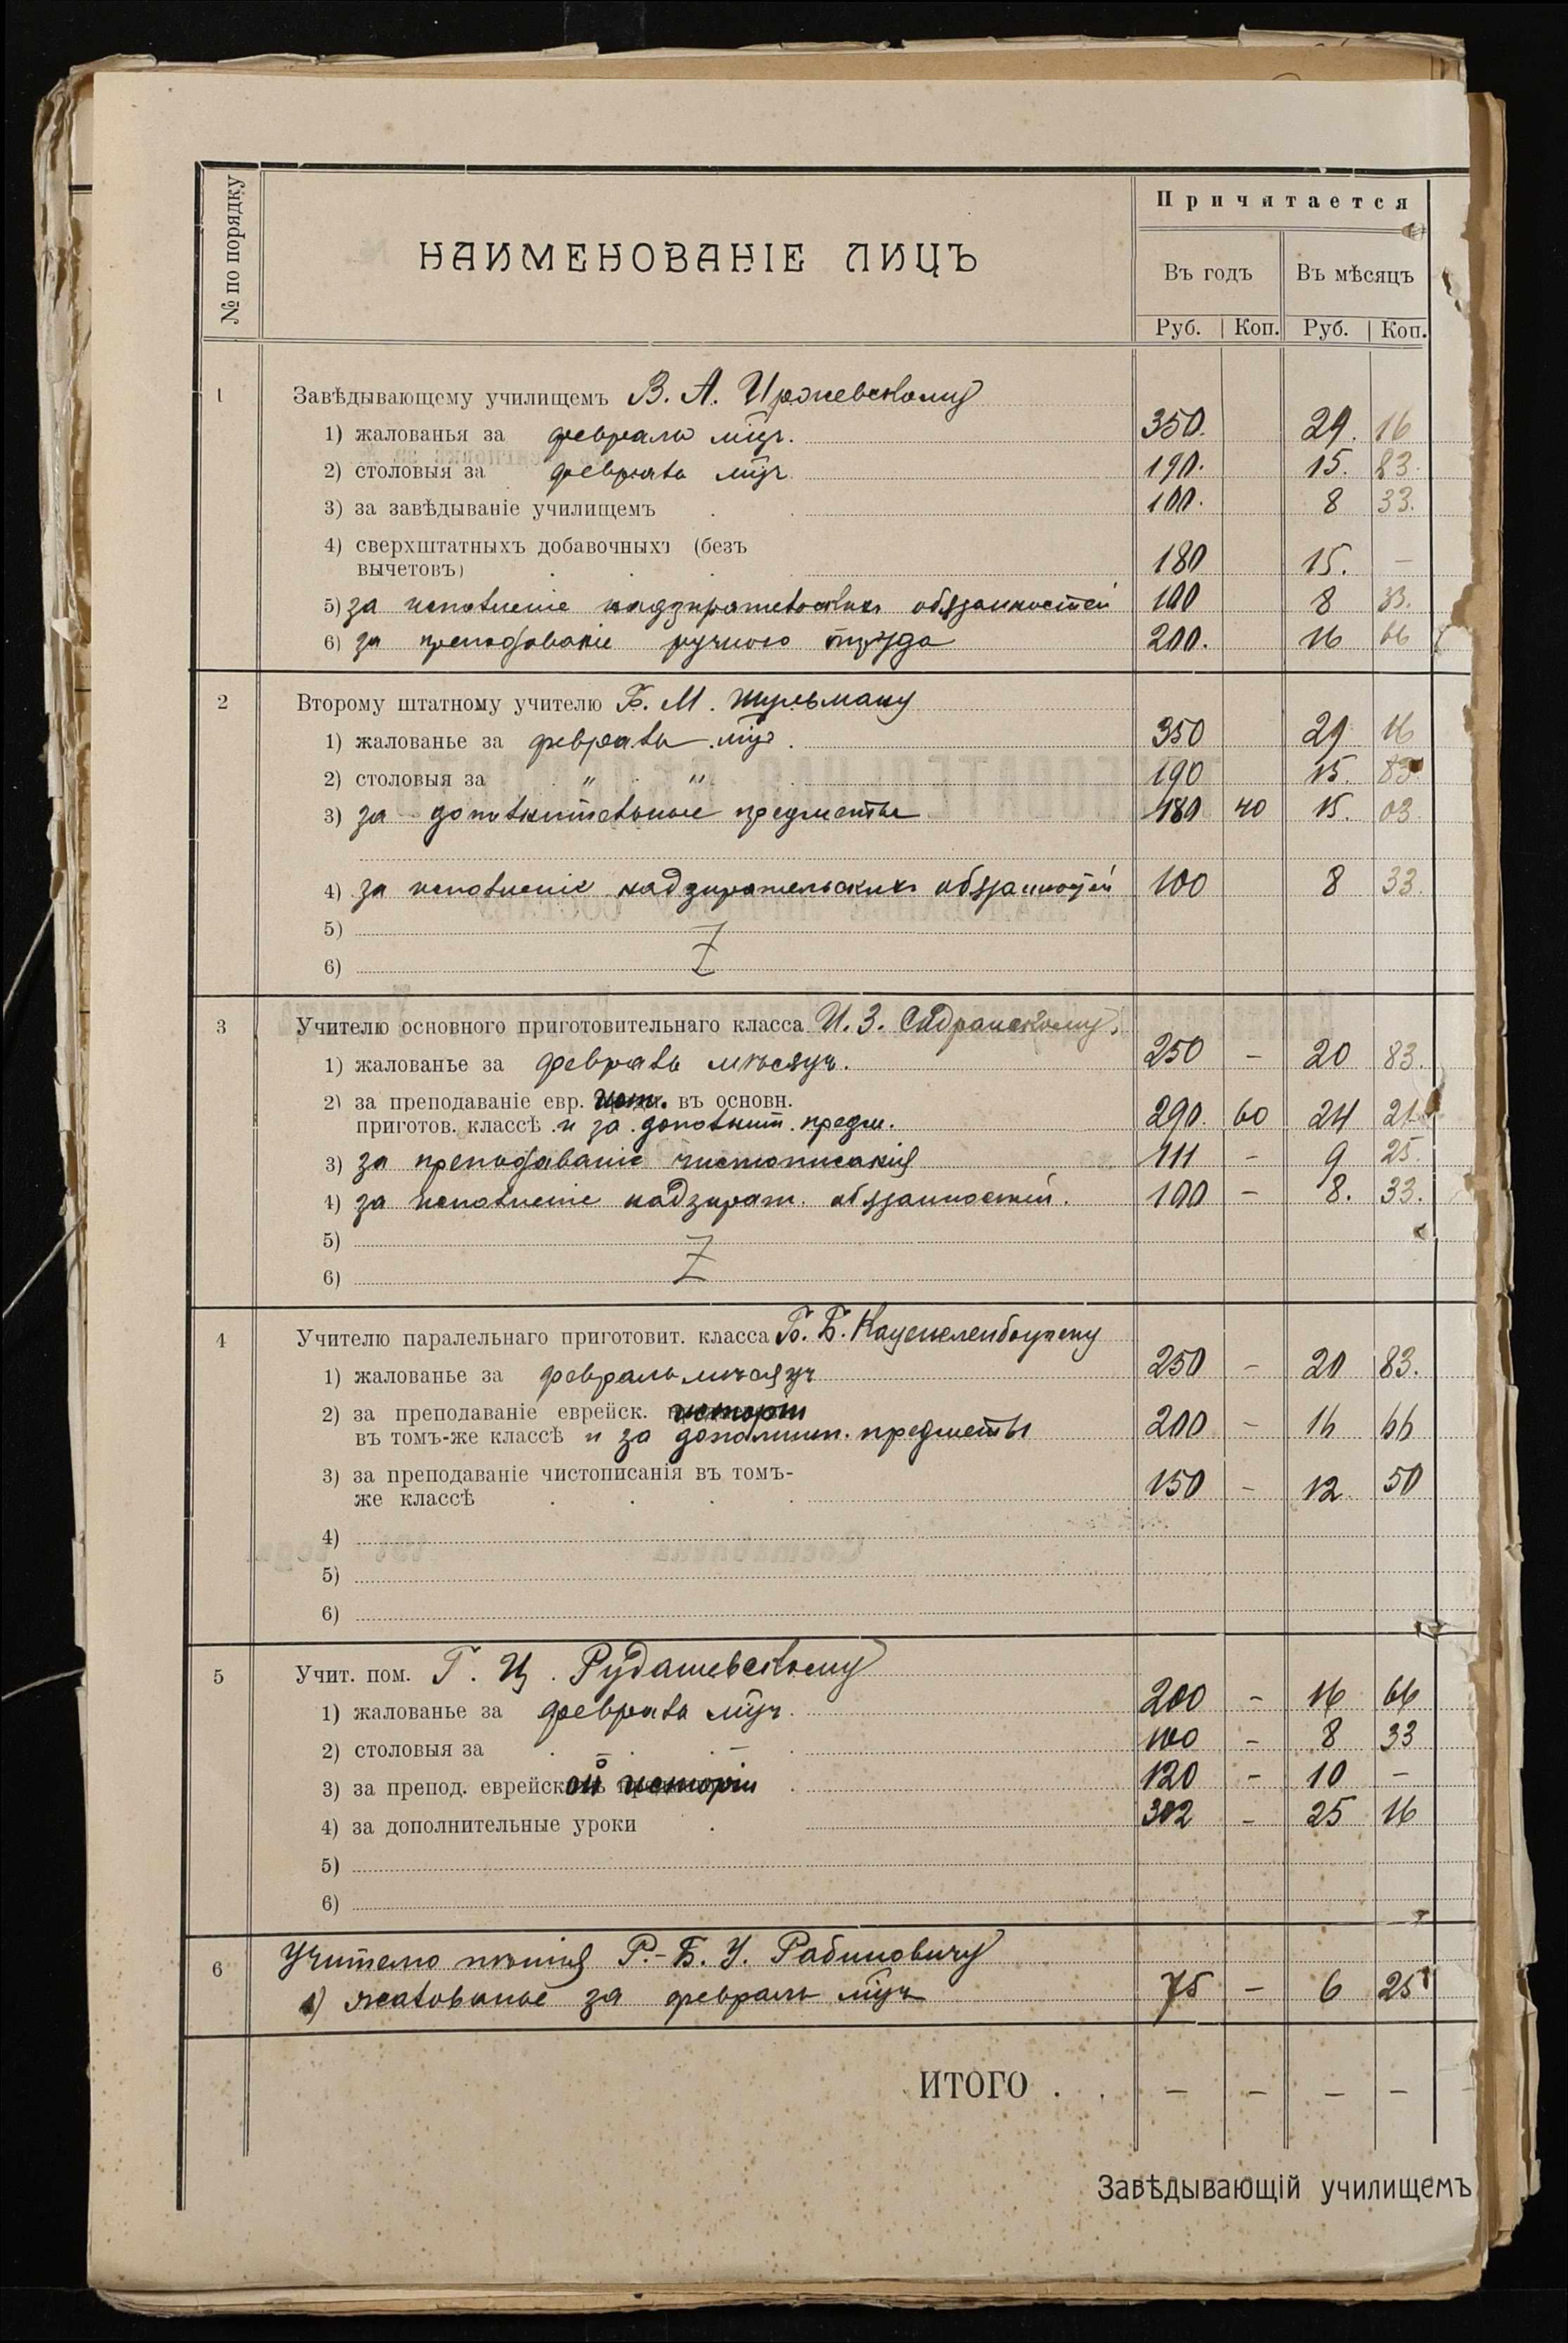 № по порядку
НАИМЕНОВАНІЕ ЛИЦЪ
Причитается
Въ годъ Въ мѣсяцъ
Руб. Коп. Руб. Коп.
1 Завѣдывающему училищемъ В. А.
1) жалованья за февраль мцъ. 350. 29. 16
2) столовыя за февраль мцъ 190. 15. 83.
3) за завѣдываніе училищемъ 100. 8 33.
4) сверхштатныхъ добавочныхъ (безъ
вычетовъ) 180 15. —
5) за исполненіе надзирательскихъ обязанностей 100 8 33.
6) за преподаваніе ручного труда 200. 16 66
2 Второму штатному учителю Б. М. Шульману
1) жалованье за февраль мцъ. 350 29 16
2) столовыя за " " 190 15. 83.
3) за дополнительные предметы 180 40 15. 03.
4) за исполненіе надзирательскихъ обязанностей 100 8 33.
5)
6)
3 Учителю основного приготовительнаго класса И. З. Сидранскому.
1) жалованье за февраль мѣсяцъ. 250 — 20 83.
2) за преподаваніе евр. ист. въ основн.
приготов. классѣ и за дополнит. предм. 290. 60 24 21
3) за преподаваніе чистописанія 111 — 9 25.
4) за исполненіе надзират. обязанностей. 100 — 8. 33.
5)
6)
4 Учителю паралельнаго приготовит. класса Б. Б. Каценеленбогену
1) жалованье за февраль мѣсяцъ 250 — 20 83.
2) за преподаваніе еврейск. исторіи
въ томъ-же классѣ и за дополнит. предметы 200 — 16 66
3) за преподаваніе чистописанія въ томъ-
же классѣ 150 — 12. 50
4)
5)
6)
5 Учит. пом. Г. Ц. Рудашевскому
1) жалованье за февраль мцъ. 200 — 16 66
2) столовыя за — — 100 — 8 33
3) за препод. еврейской исторіи 120 — 10 —
4) за дополнительные уроки 302 — 25 16
5)
6)
6 Учителю пѣнія Р.-Б. У. Рабиновичу
1) жалованье за февраль мцъ 75 — 6 25
ИТОГО . . — — — —
Завѣдывающій училищемъ